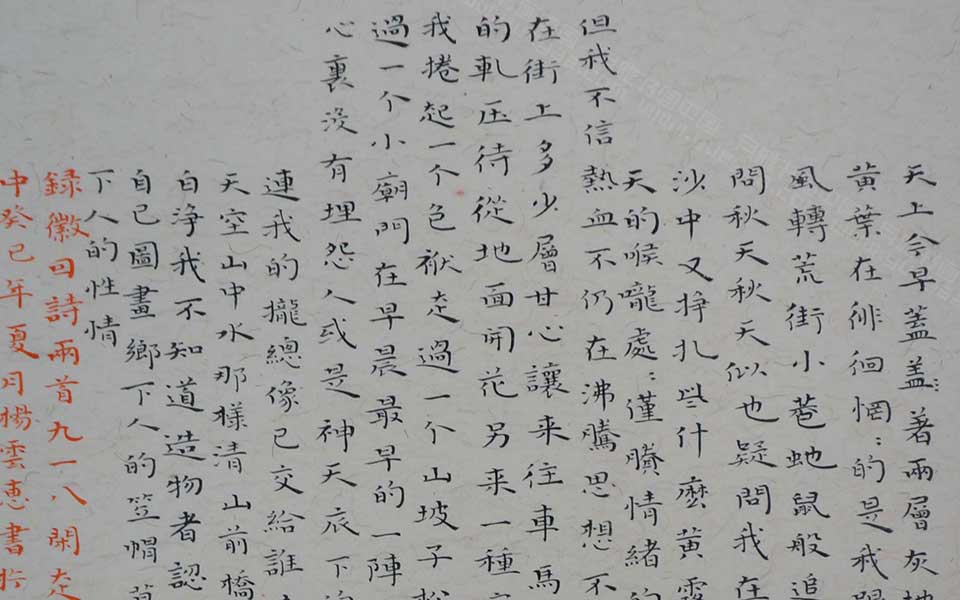 天上今早蓋盖:著兩層灰
黄葉在徘徊惘:的是我
風轉荒街小巷虵鼠般追
問秋天秋天似也疑問我在
沙中又掙扎些什麼黄霧
天的喉嚨處:僅賸情緒的
但我不信熱血不仍在沸騰思想不
在街上多少層甘心讓来往車馬
的軋压待從地面開花另来一種
我捲起一个包袱走過一个山坡子松
過一个小廟門在早晨最早的一陣
心裏没有埋怨人或是神天底下
連我的攏總像已交給誰
天空山中水那樣清山前橋
自淨我不知道造物者認
自己圖畫鄉下人的笠帽草
下人的性情
録徽因詩兩首九一八閑走
中癸巳年夏月楊雲惠書於